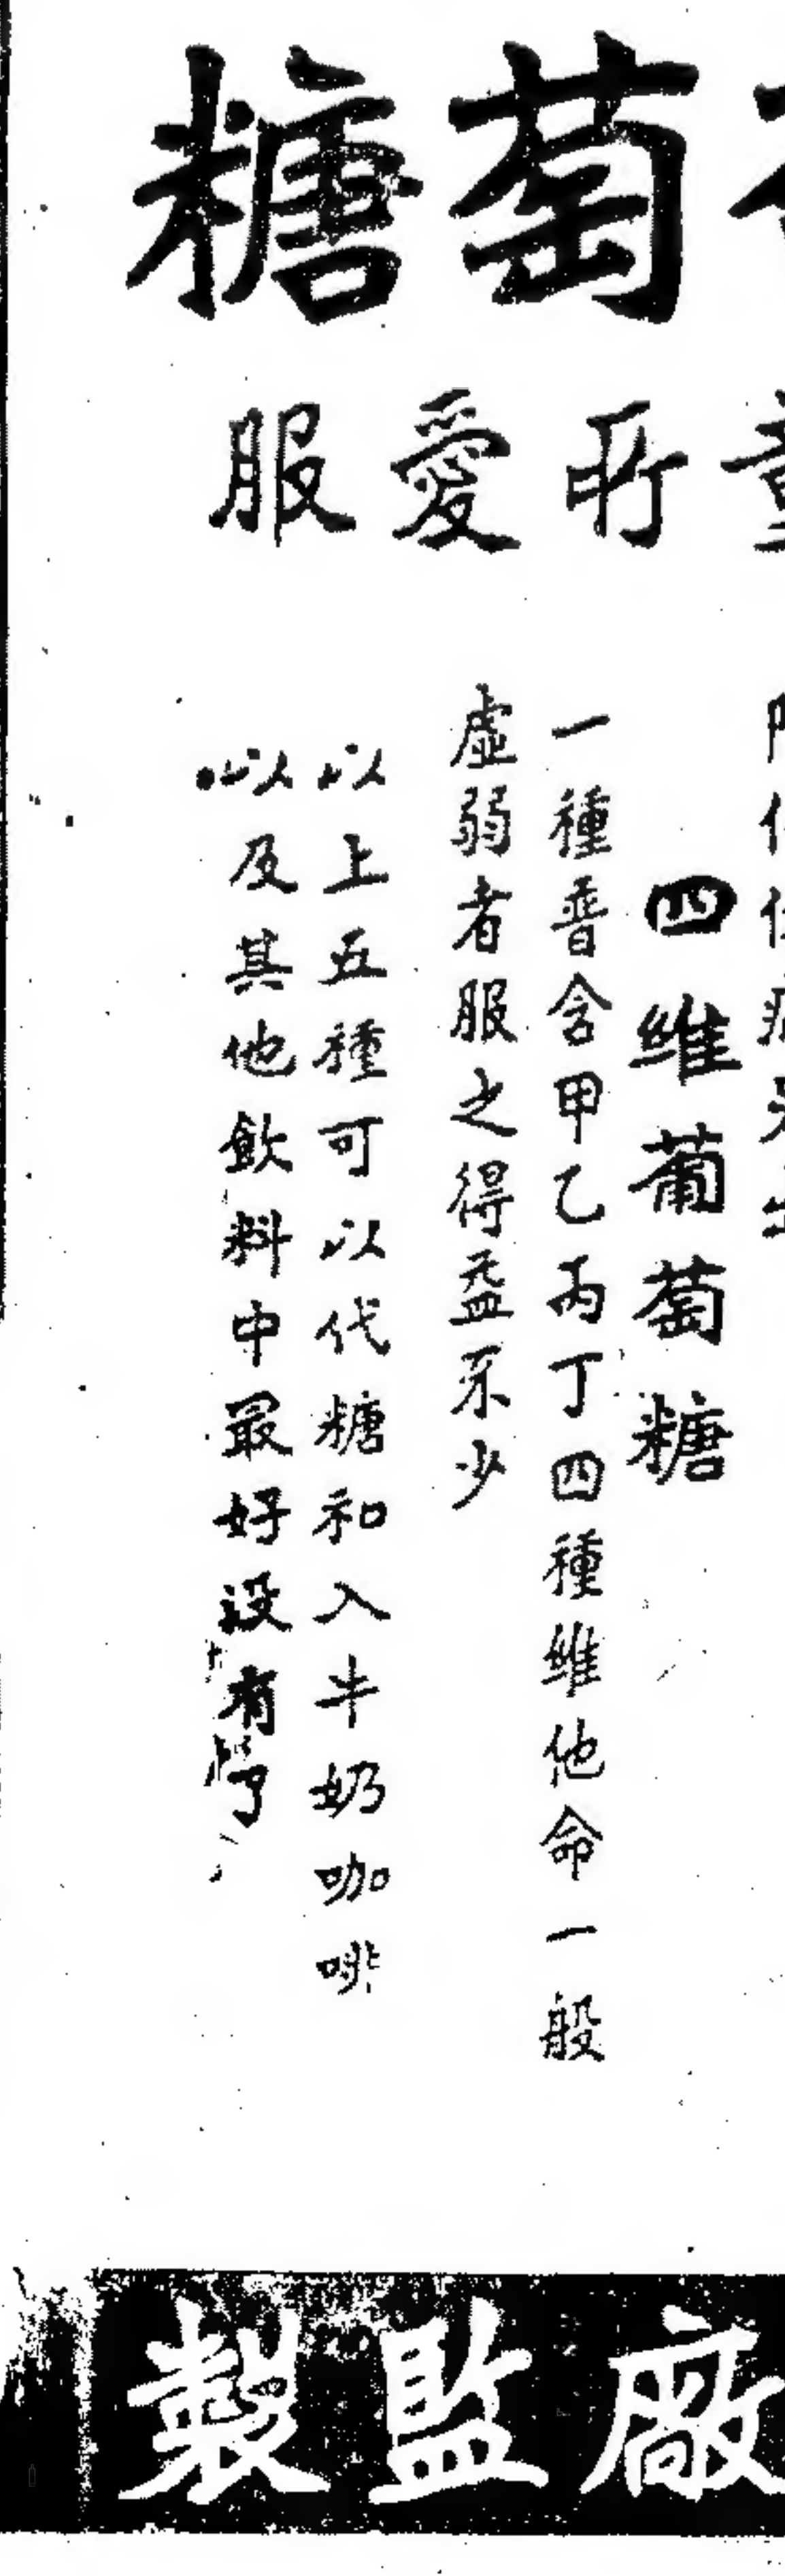 萄糖
所愛服
四維葡萄糖
一種普含甲乙丙丁四種維他命一般
虛弱者服之得益不少
以上五種可以代糖和入牛奶咖啡
以及其他飲料中最好沒有
廠監製